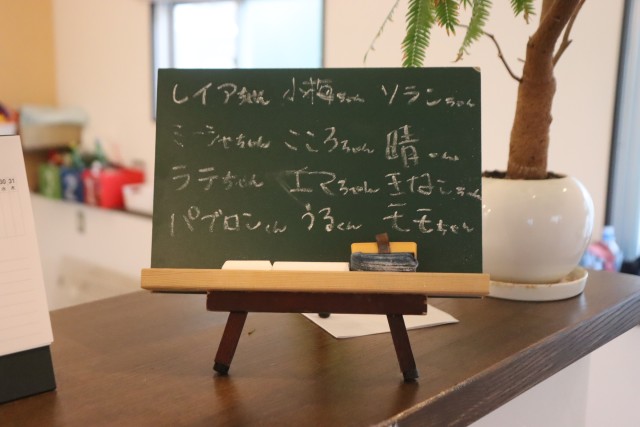 レイアちゃん 小梅ちゃん ソランちゃん
ミーシャちゃん こころちゃん 晴くん
ラテちゃん エマちゃん きなこちゃん
パブロンくん うるくん モモちゃん
30 31